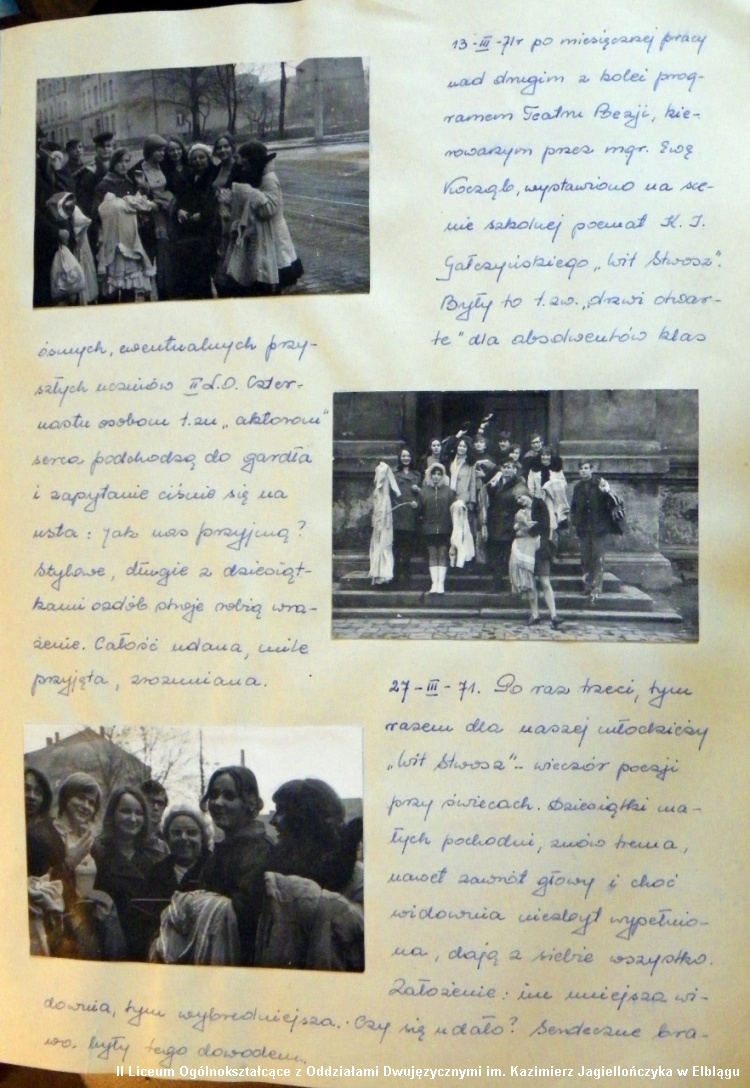 13-III-71r po miesięcznej pracy
nad drugim z kolei prog-
ramem Teatru Poezji, kie-
rowanym przez mgr. Ewę
wystawiono na sce-
nie szkolnej poemat K. I.
Gałczyńskiego „Wit Stwosz".
Były to t.zw. „drzwi otwar-
te" dla absolwentów klas
ósmych, ewentualnych przy-
szłych uczniów II L.O. Czter-
nastu osobom t.zw „aktorom"
serca podchodzą do gardła
i zapytanie ciśnie się na
usta: jak nas przyjmą?
Stylowe, długie z dziesiąt-
kami ozdób stroje robią wra-
żenie. Całość udana, mile
przyjęta, zrozumiana.
27-III-71. Po raz trzeci, tym
razem dla naszej młodzieży
„Wit Stwosz" - wieczór poezji
przy świecach. Dziesiątki ma-
łych pochodni, znów trema,
nawet zawrót głowy i choć
widownia niezbyt wypełnio-
na, dają z siebie wszystko.
Założenie: im mniejsza wi-
downia, tym wybredniejsza. Czy się udało? Serdeczne bra-
wa były tego dowodem.
II Liceum Ogólnokształcące z Oddziałami Dwujęzycznymi im. Kazimierz Jagiellończyka w Elblągu